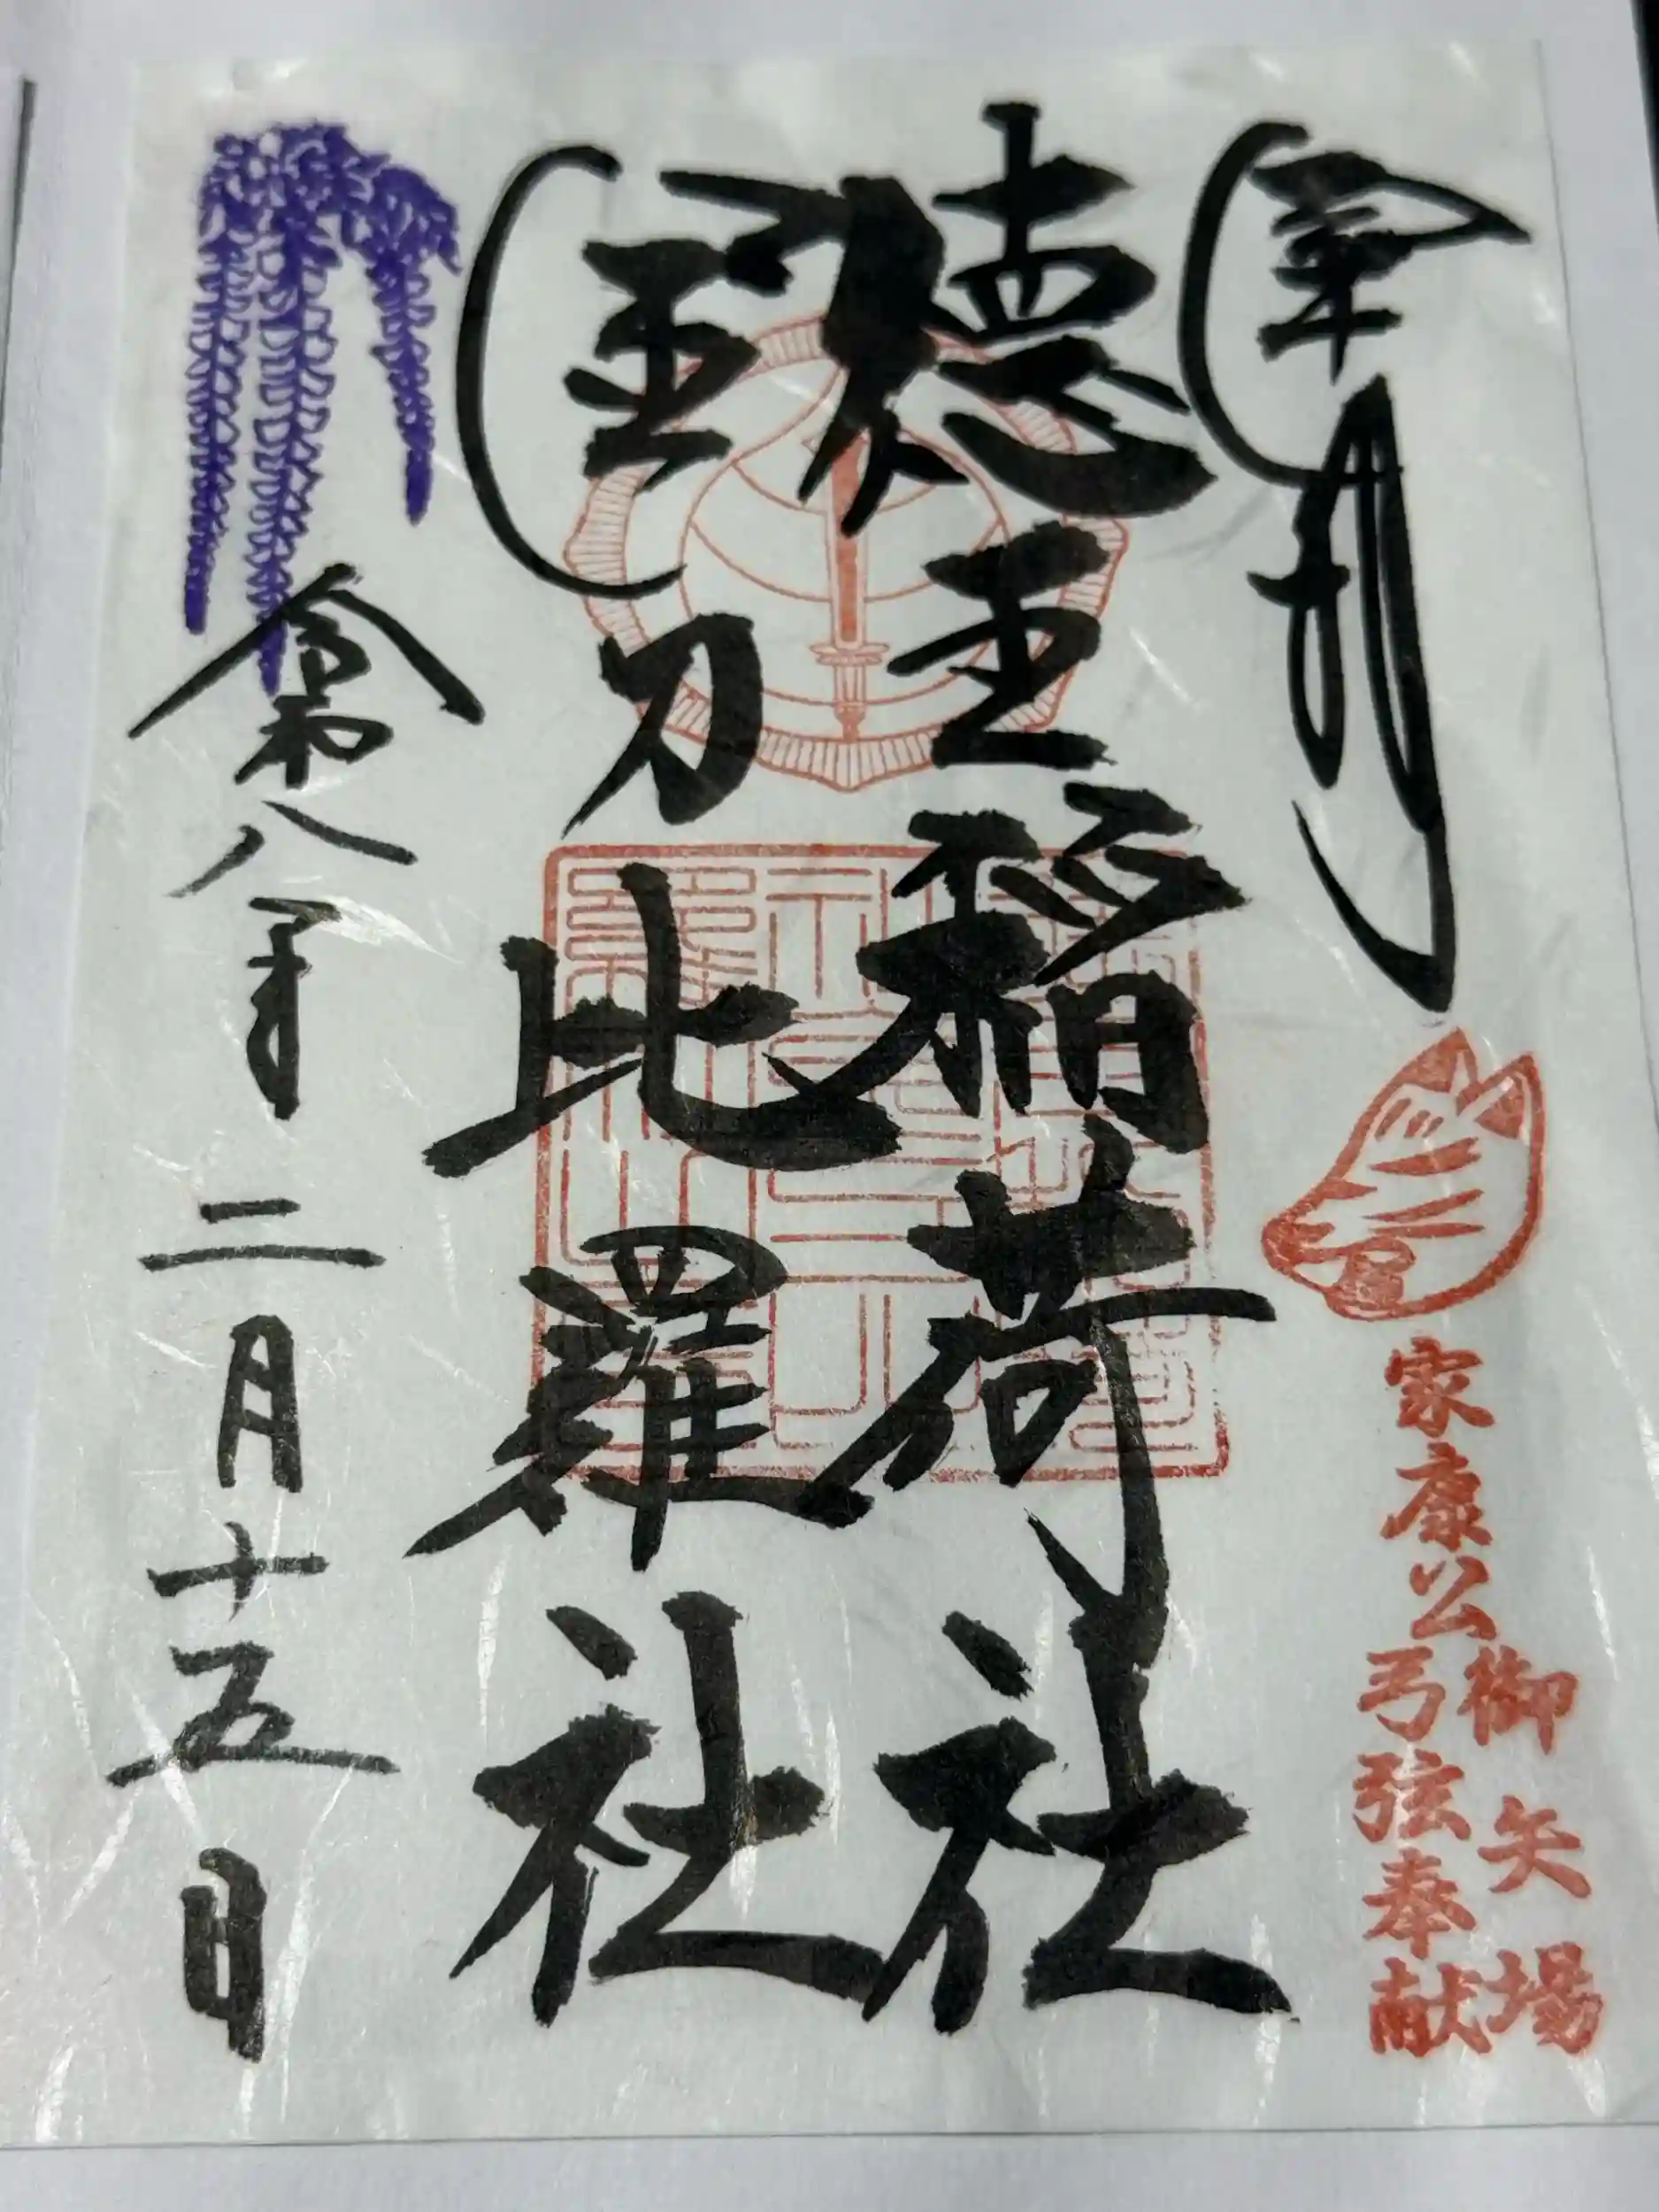 奉拝
家康公
御矢場
弓弦奉献
徳王稲荷社
金刀比羅社
令和八年二月十五日